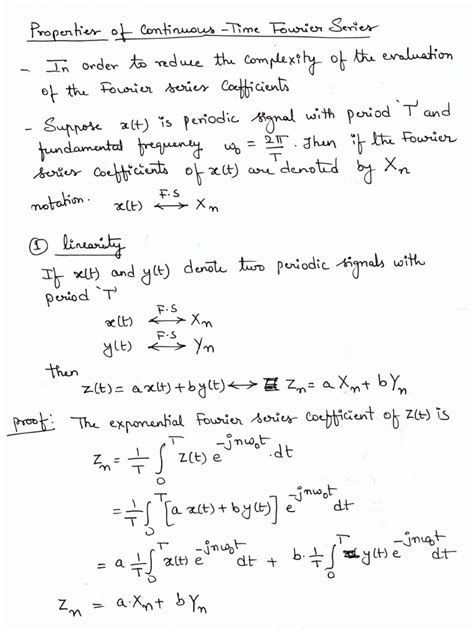 Properties of Continuous-Time Fourier Series
- In order to reduce the complexity of the evaluation
of the Fourier series Coefficients
- Suppose x(t) is periodic signal with period 'T' and
fundamental frequency ω₀ = 2π/T. Then if the Fourier
series coefficients of x(t) are denoted by Xn
notation. x(t) <-F.S-> Xn
① linearity
If x(t) and y(t) denote two periodic signals with
period 'T'
x(t) <-F.S-> Xn
y(t) <-F.S-> Yn
then
z(t) = a x(t) + b y(t) <-> Zn = a Xn + b Yn
proof: The exponential Fourier series coefficient of z(t) is
Zn = 1/T ∫₀ᵀ z(t) e^(-jnω₀t) . dt
= 1/T ∫₀ᵀ [a x(t) + b y(t)] e^(-jnω₀t) dt
= a 1/T ∫₀ᵀ x(t) e^(-jnω₀t) dt + b. 1/T ∫₀ᵀ y(t) e^(-jnω₀t) dt
Zn = a.Xn + b Yn